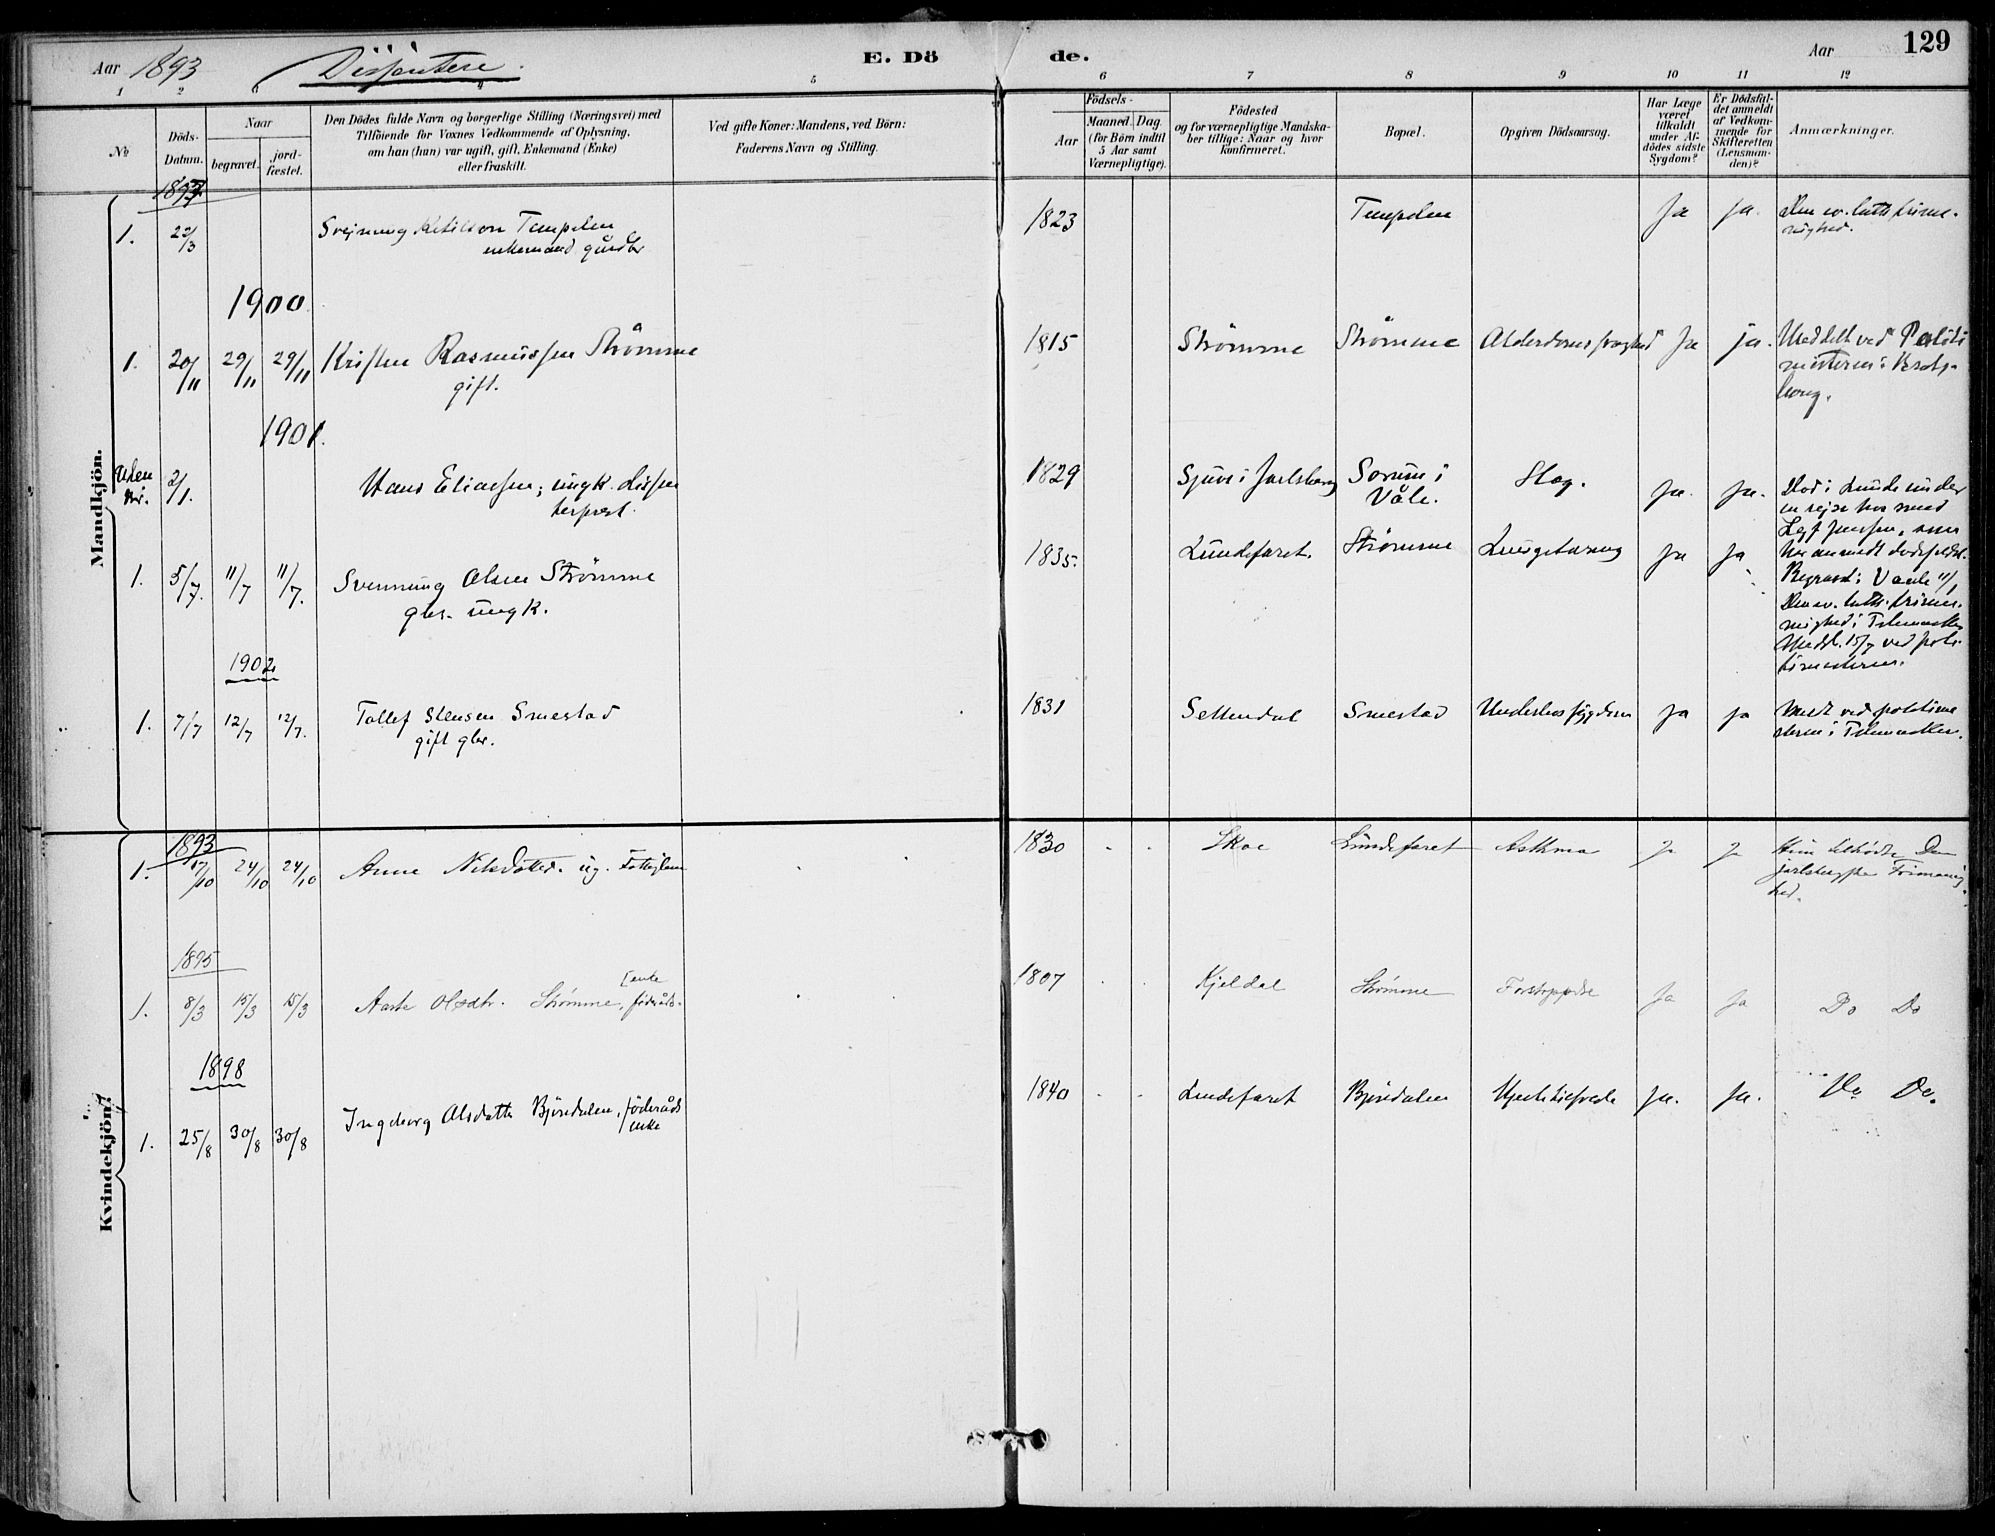 129
Aar 1893 Dissentere. E. Döde. Aar
1 2 3 4 5 6 7 8 9 10 11 12
No
Döds-Datum.
Naar
begravet.
jord-fæstet.
Den Dödes fulde Navn og borgerlige Stilling (Næringsvei) med
Tilföiende for Voxnes Vedkommende af Oplysning,
om han (hun) var ugift, gift, Enkemand (Enke)
eller fraskilt.
Ved gifte Koner: Mandens, ved Börn:
Faderens Navn og Stilling.
Födsels-
Aar
Maaned. Dag.
(for Börn indtil
5 Aar samt
Værnepligtige).
Födested
og for værnepligtige Mandska-
ber tillige: Naar og hvor
konfirmeret.
Bopæl.
Opgiven Dödsaarsag.
Har Læge
været
tilkaldt
under Af-
dödes sidste
Sygdom?
Er Dödsfal-
det anmeldt
af Vedkom-
mende for
Skifteretten
(Lensman-
den)?
Anmærkninger.
Mandkjön.
1. 22/3 Svejnung Ketilson Tempelen 1823 Tempelen Ja ja. Den ev. luth. frime-
enkemand gårdbr nighed.
1900
1. 20/11 29/11 29/11 Kristen Rasmussen Strømme 1815 Strømme Strømme Alderdomssvaghed Ja ja. Meddelt ved Politi
gift. mesteren i Bratsberg.
1901.
Uden Nr. 2/1. Hans Eliassen; ungk. dissenterprest. 1829 Sjuve i Jarlsberg Sorum i Våle. Slag. ja. ja. Død i Lunde under
en rejse hos
har anmeldt dødsfaldet.
Begravet i Vaale 11/1
1. 5/7. 11/7 11/7. Svennung Olsen Strømme 1835. Lundefaret. Strømme Lungetæring ja ja Den ev. luth. frime-
gbr. ungk. nighed i Telemarken
Meddl. 15/7 ved poli-
timesteren.
1902
1. 7/7 12/7 12/7. Tollef Stensen Smestad 1831 Settendal Smestad Underlivssygdom ja ja Medt ved politime
gift gbr. steren i Telemarken.
Kvindekjön.
1893
1. 17/10 24/10 24/10 Anne Nilsdotter. ug. Fattiglem 1830 Skoe Lundefaret Asthma ja ja Hun tilhørte Den
jarlsbergske Frimenig
hed.
1895
1. 8/3 15/3 15/3 Aaste Olsdtr. Strømme, føderåds- enke 1807 Kjeldal Strømme Forstoppelse Ja Ja Do Do
1898
1. 25/8 30/8 30/8 Ingeborg Olsdatter Bjøredalen, føderåds enke 1840 Lundefaret Bjøredalen Hjertelisfeede ja. ja. Do Do.